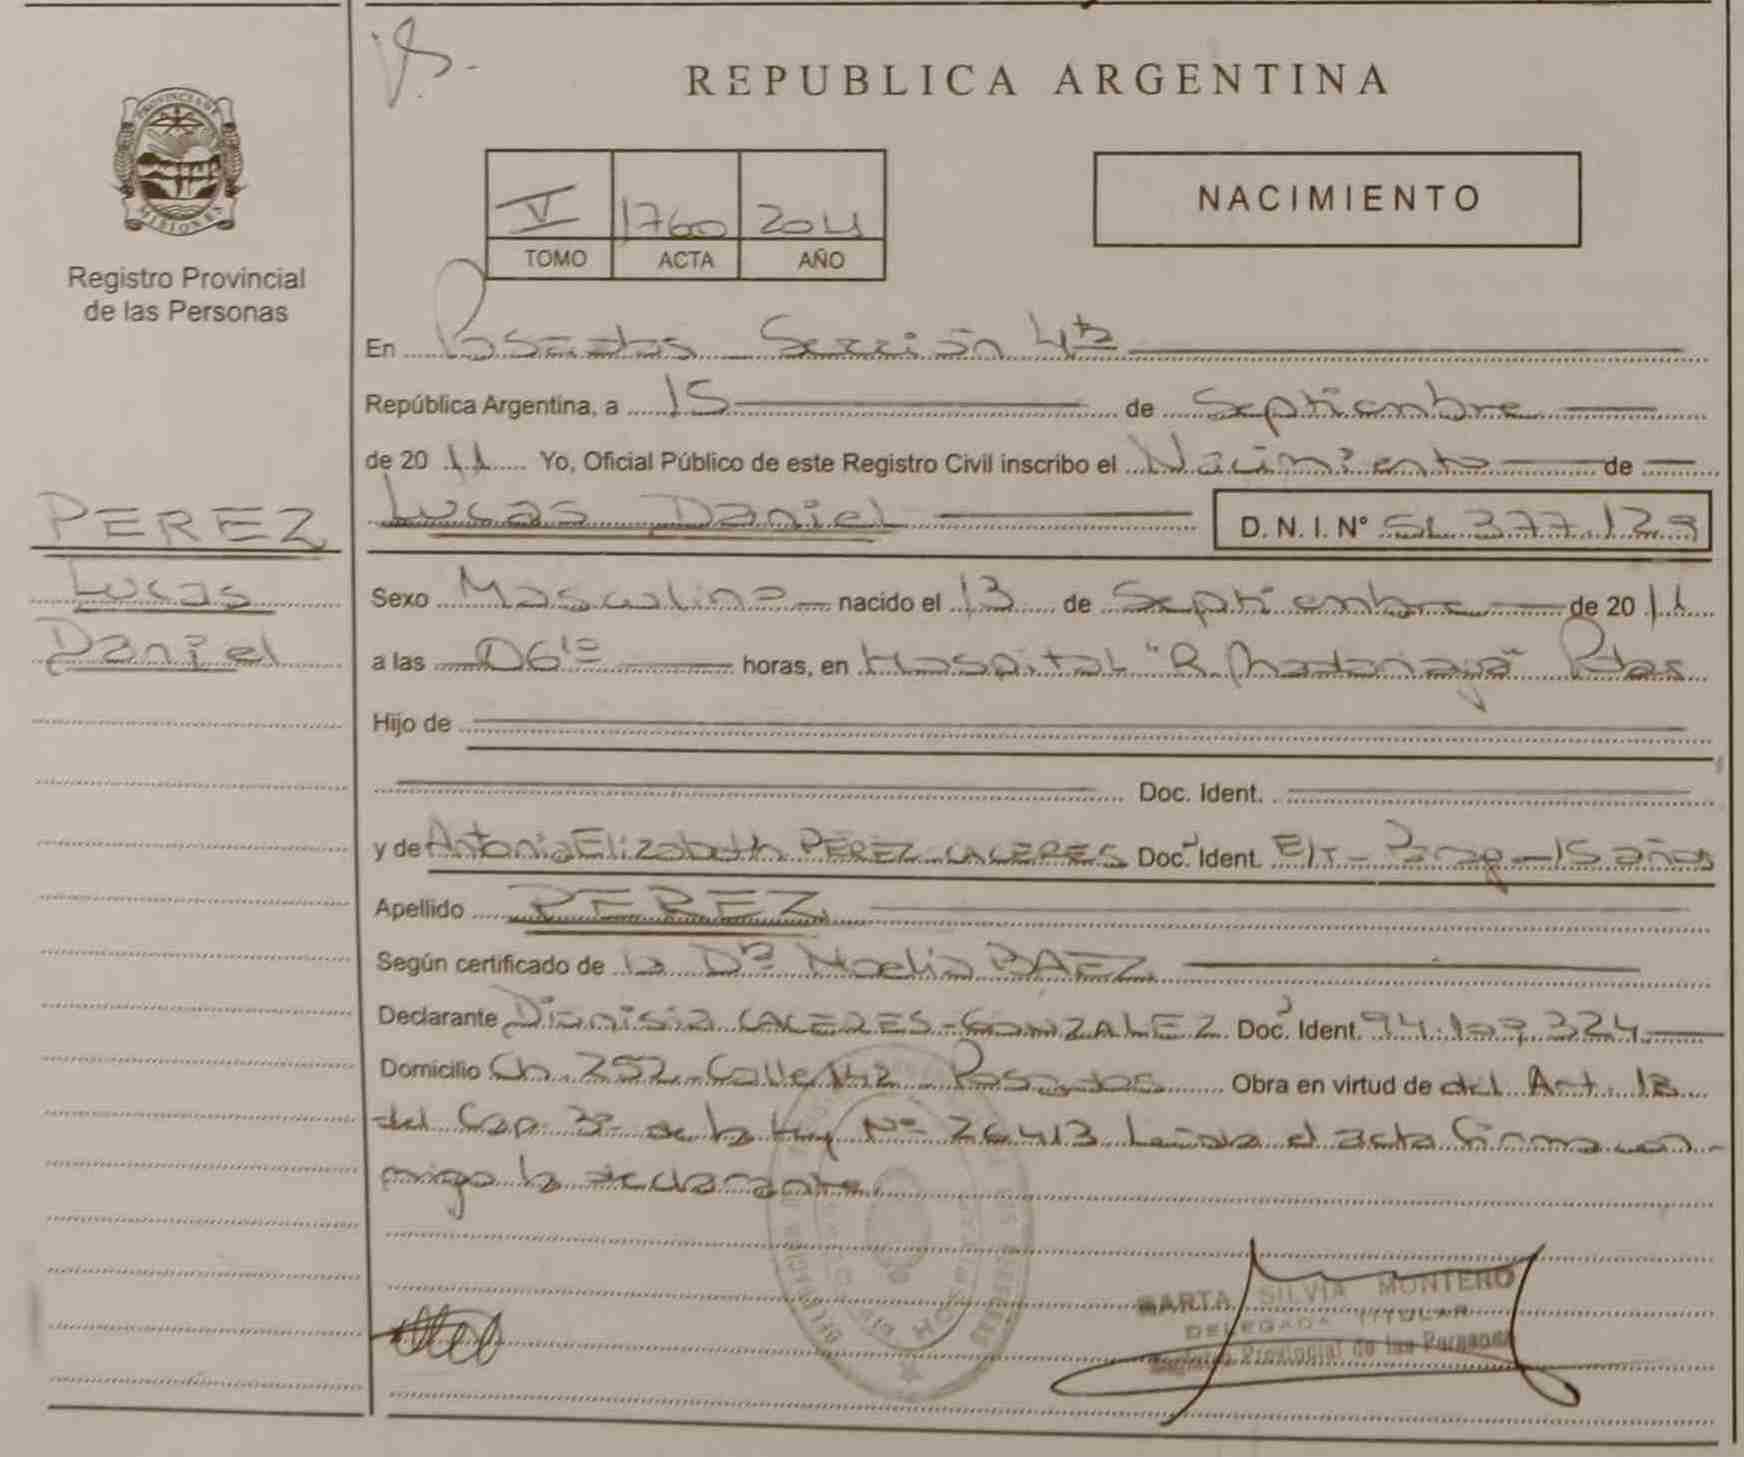 REPUBLICA ARGENTINA
PROVINCIA DE
MISIONES
Registro Provincial
de las Personas
V 1760 2011
TOMO ACTA AÑO
NACIMIENTO
En Posadas Sección 4ta
República Argentina, a 15 de Septiembre
de 20 11 Yo, Oficial Público de este Registro Civil inscribo el Nacimiento de
PEREZ
Lucas
Daniel
Lucas Daniel D. N. I. Nº 51.377.129
Sexo Masculino nacido el 13 de Septiembre de 20 11
a las 0610 horas, en Hospital "R. Madariaga" Pdas
Hijo de
Doc. Ident.
y de Antonia Elizabeth PEREZ CACERES Doc. Ident. E/T - Parag - 15 años
Apellido PEREZ
Según certificado de la Dra Noelia BAEZ
Declarante Dionisia CACERES-GONZALEZ Doc. Ident. 94.159.324
Domicilio Ch. 252 Calle 142 Posadas Obra en virtud de del Art. 13
del Cap. 3º de la Ley Nº 26413 Leída el acta firma con-
migo la declarante
MARTA SILVIA MONTERO
DELEGADA TITULAR
Registro Provincial de las Personas